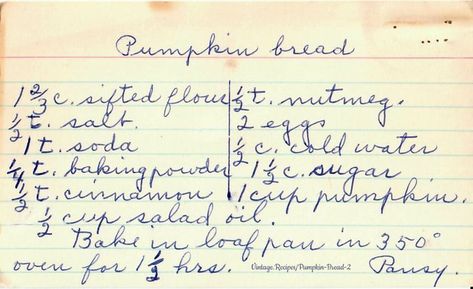 Pumpkin bread
1 2/3 c. sifted flour
1/2 t. salt.
1 t. soda
1/4 t. baking powder
1/2 t. cinnamon
1/2 cup salad oil.
1/2 t. nutmeg.
2 eggs
1/2 c. cold water
1 1/2 c. sugar
1 cup pumpkin.
Bake in loaf pan in 350°
oven for 1 1/2 hrs. Vintage.Recipes/Pumpkin-Bread-2 Pansy.